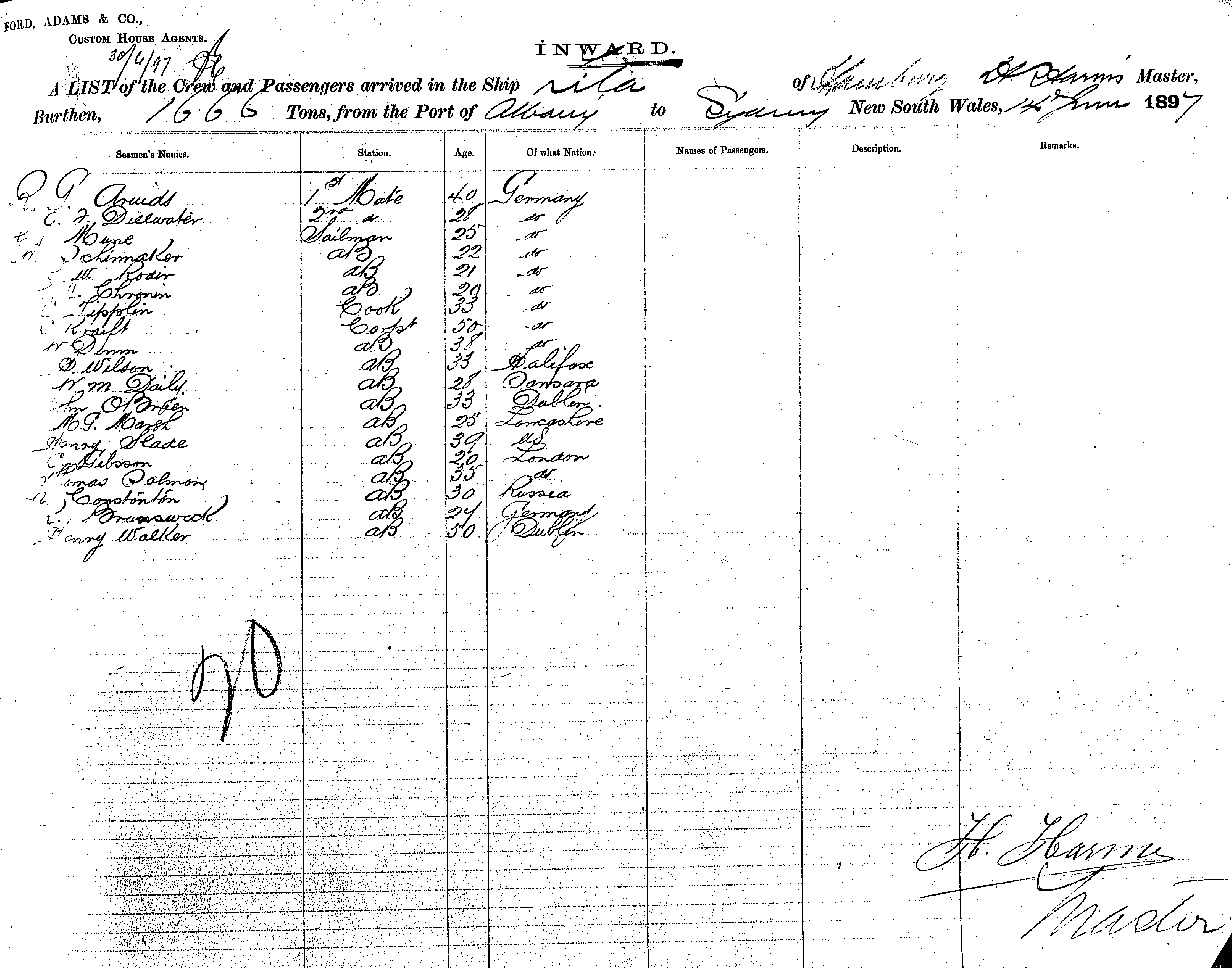 FORD, ADAMS & CO.,
CUSTOM HOUSE AGENTS.
30/6/97
INWARD.
A LIST of the Crew and Passengers arrived in the Ship Rita of Hamburg H Harms Master,
Burthen, 1666 Tons, from the Port of Albany to Sydney New South Wales, 1897
Seamen's Names. Station. Age. Of what Nation. Names of Passengers. Description. Remarks.
1st Mate 40 Germany
2nd do 28 do
Sailman 25 do
Schumaker AB 22 do
W. AB 21 do
AB 20 do
Cook 33 do
Kraift 50 do
AB 38 do
D. Wilson AB 33 Halifax
Wm Daily AB 28
O'Brien AB 33 Dublin
M. P. Marsh AB 25 Lancashire
Henry Slade AB 39
Gibson AB 20 London
Thomas Salmon AB 35 do
Constonton AB 30 Russia
Brunsweck AB 24 Germany
Henry Walker AB 50 Dublin
20
H. Harms
Master